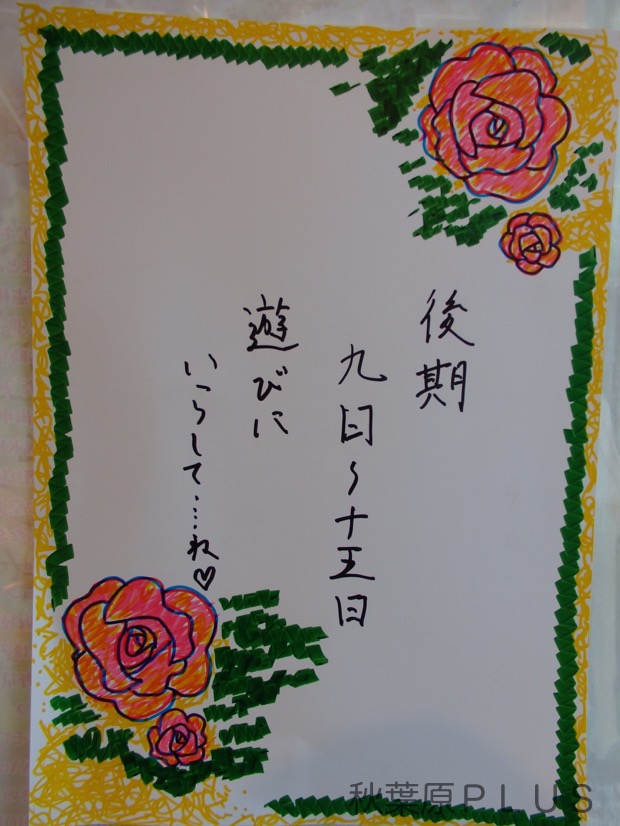 後期
九日〜十五日
遊びに
いらして……ね♡
秋葉原PLUS